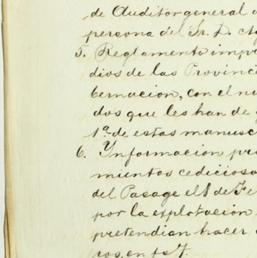 de Auditor general
persona del Sr. D.
5. Reglamento impr
dios de las Provinc
bernacion, con el nu
dos que les han de
1ª de estas manusc
6. Ynformacion pri
mientos cediciosa
del Pasage el 1 de Fe
por la explotacion
pretendian hacer
ros, en fs 7.